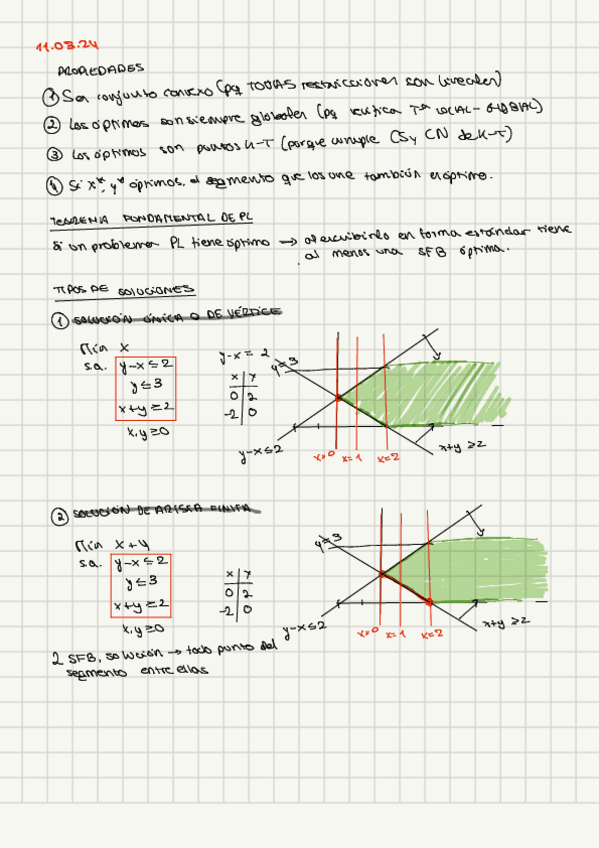 11.03.24
PROPIEDADES
① Son conjunto convexo (pq TODAS restricciones son lineales)
② Los óptimos son siempre globales (pq verifica Tª LOCAL-GLOBAL)
③ Los óptimos son puntos K-T (porque cumple CS y CN de K-T)
④ Si x*, y* óptimos, el segmento que los une también es óptimo.
TEOREMA FUNDAMENTAL DE PL
Si un problema PL tiene óptimo → al escribirlo en forma estándar tiene
al menos una SFB óptima.
TIPOS DE SOLUCIONES
① SOLUCIÓN ÚNICA O DE VÉRTICE
Min x
s.a. y-x ≤ 2
y ≤ 3
x+y ≥ 2
x,y ≥ 0
y-x = 2
x y
0 2
-2 0
y=3
y-x≤2
x=0 x=1 x=2
x+y ≥2
② SOLUCIÓN DE ARISTA FINITA
Min x+y
s.a. y-x ≤ 2
y ≤ 3
x+y ≥ 2
x,y ≥ 0
x y
0 2
-2 0
y=3
y-x≤2
x=0 x=1 x=2
x+y ≥2
2 SFB, solución → todo punto del
segmento entre ellas